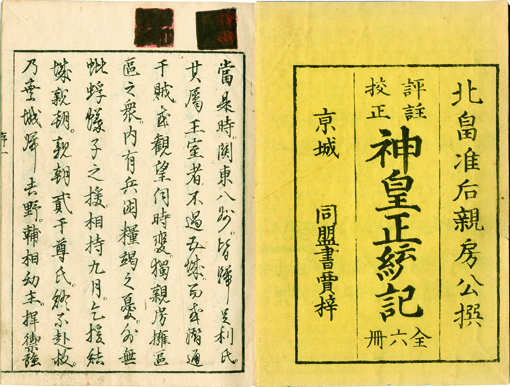 北畠准后親房公撰
評註
校正
神皇正統記
全六冊
京城　同盟書賈梓
當是時関東八州。皆歸足利氏。
其屬王室者不過五城而或潜通
于賊或觀望伺時變。獨親房擁區
區之衆。内有兵困糧竭之憂外無
蚍蜉蟻子之援相持九月。乞援結
城親朝。親朝貳于尊氏。終不赴救。
乃棄城歸吉野。輔相幼主揮禦強
序一